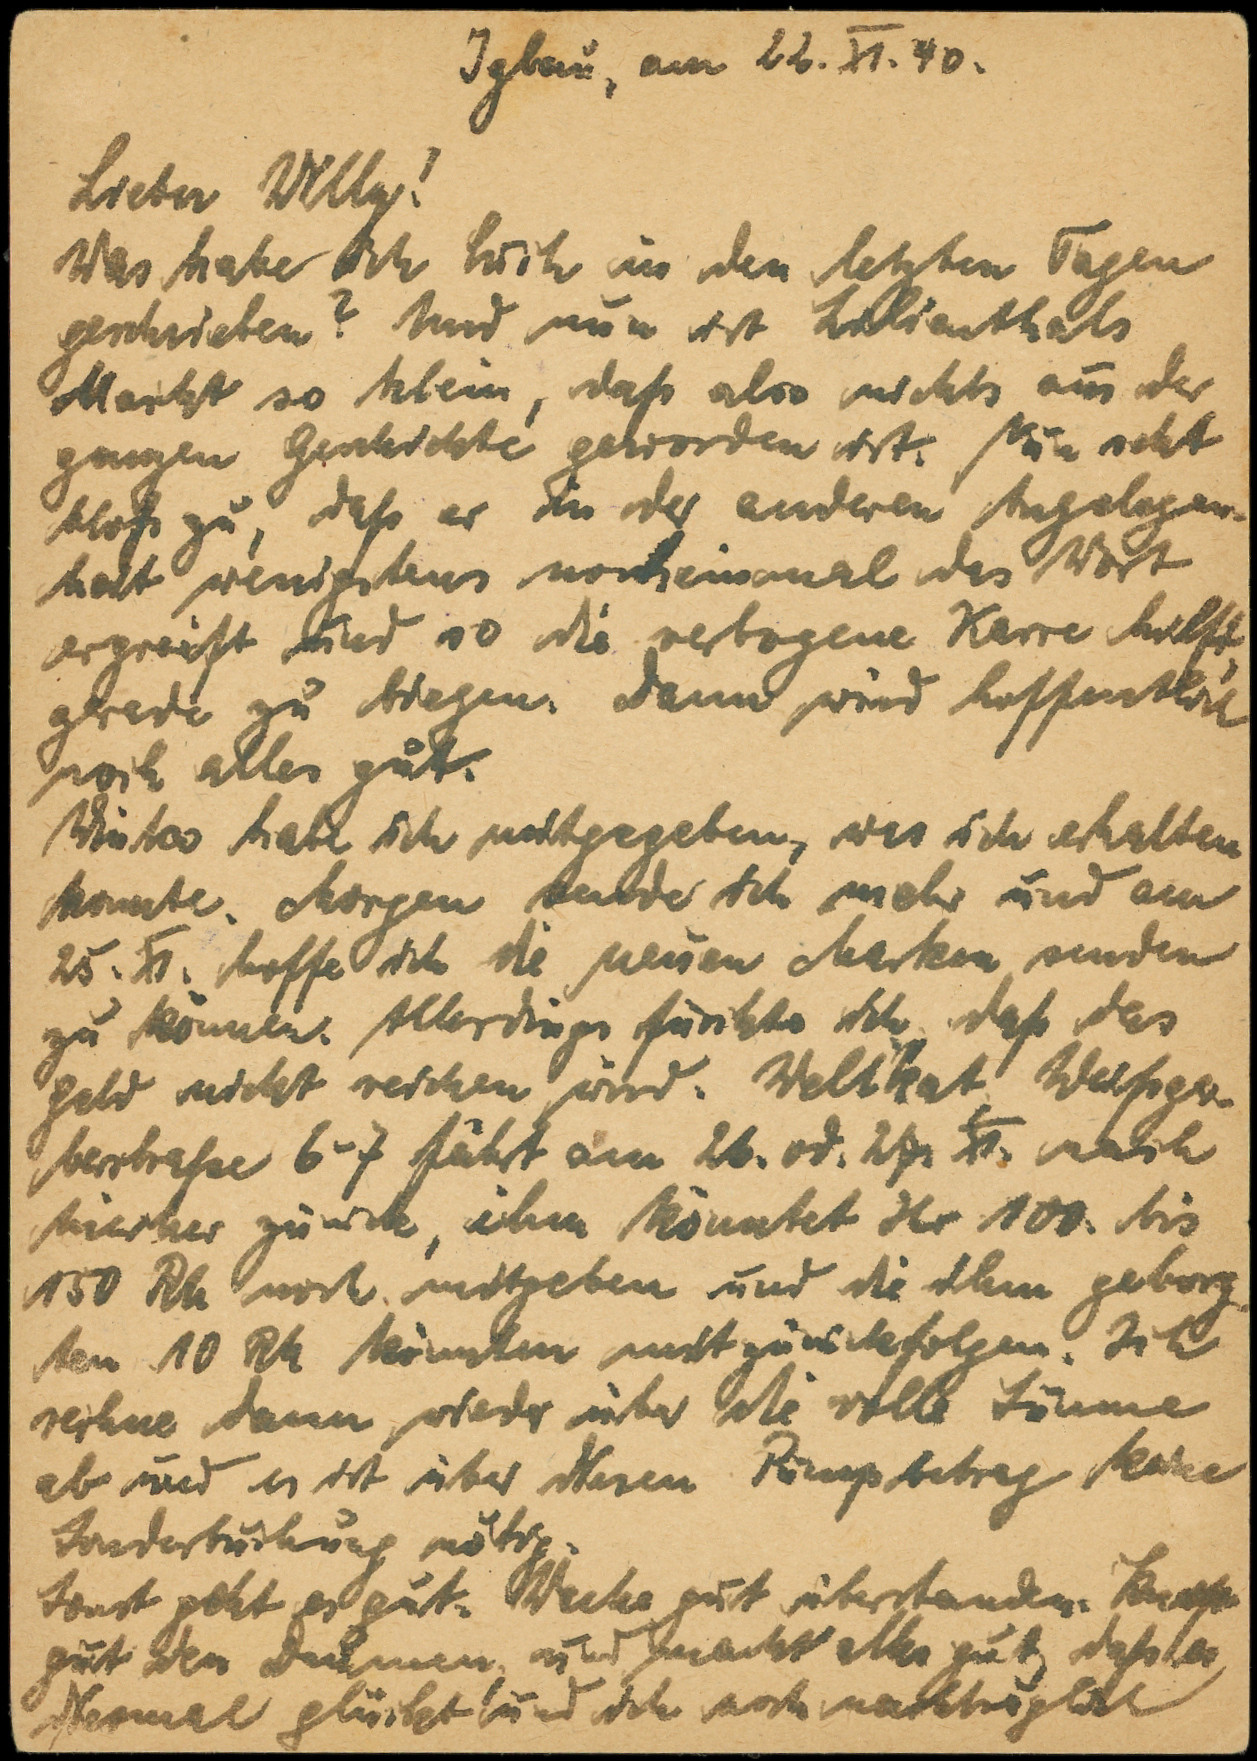 Iglau, am 22. XI. 40.
Lieber Willy!
Was habe ich Euch in den letzten Tagen
geschrieben? Und nun ist Lilienthals
Markt so klein, daß also nichts aus der
ganzen Geschichte geworden ist. Nun seht
bloß zu, daß er in der anderen Angelegen-
heit wenigstens nocheinmal das Wort
ergreift und so die verbogene Karre hilft,
gerade zu biegen. Dann wird hoffentlich
noch alles gut.
habe ich mitgegeben, was ich erhalten
konnte. Morgen sende ich mehr und am
25. XI. hoffe ich die neuen Marken senden
zu können. Allerdings fürchte ich, daß das
Geld nicht reichen wird. Weissger-
berstraße 6-7 fährt am 26. od. 27. XI. nach
hierher zurück, ihm könntet Ihr 100.- bis
150 Rk noch mitgeben und die ihm geborg-
ten 10 Rk könnten mit zurückfolgen. Ich
rechne dann wieder über die volle Summe
ab und es ist über diesen Pumpbetrag keine
Sonderbuchung nötig.
Sonst geht es gut. Woche gut überstanden.
gut den Daumen und macht alles gut, daß es
diesmal glückt und ich noch nachträglich